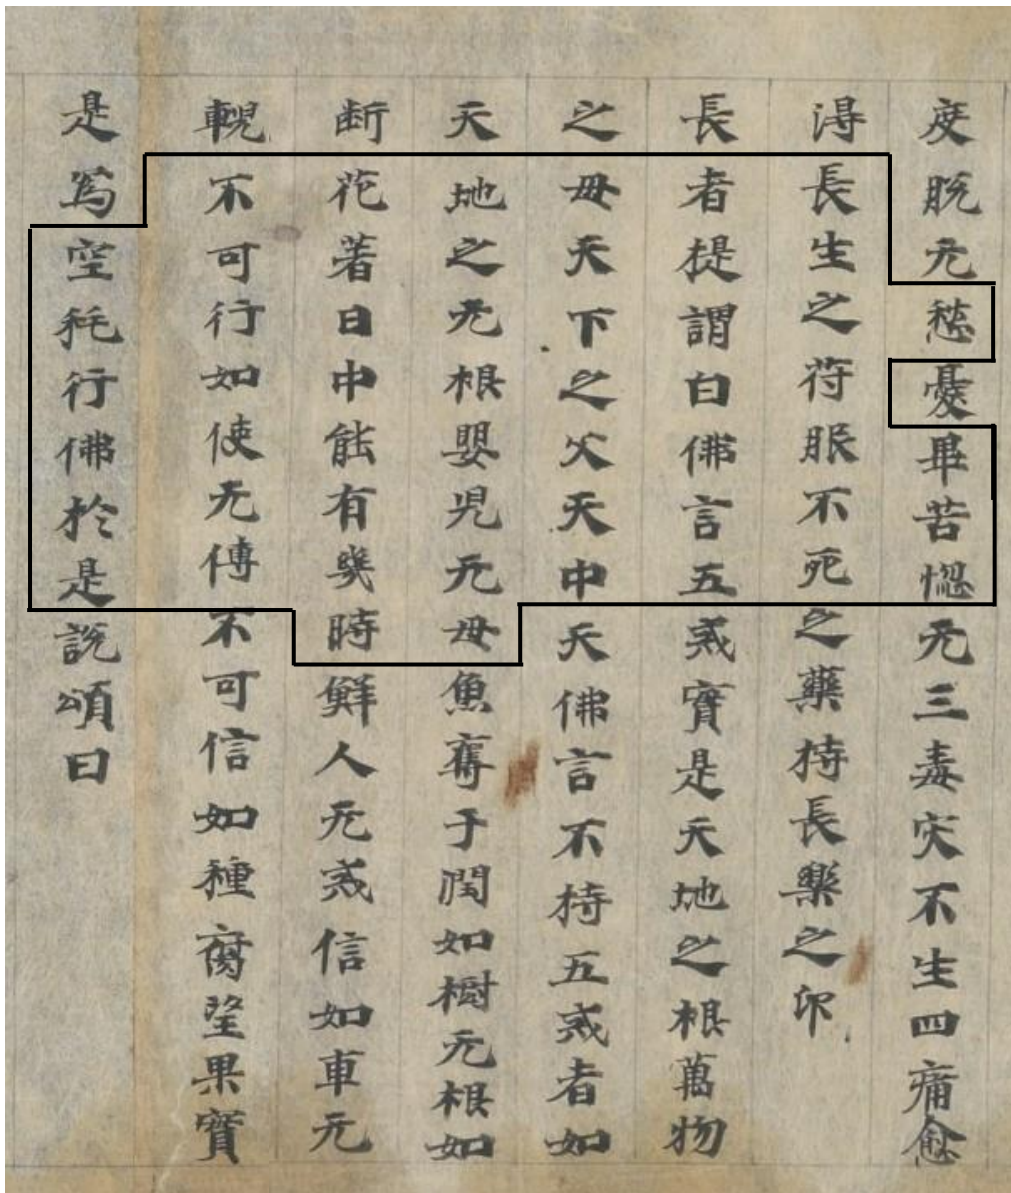 度脱无愁憂畢苦惱无三毒灾不生四痛愈
淂長生之苻服不死之藥持長樂之印
長者提謂白佛言五戒實是天地之根萬物
之母天下之父天中天佛言不持五戒者如
天地之无根嬰児无母魚奪于潤如樹无根如
断花著日中能有幾時鮮人无戒信如車无
輗不可行如使无傅不可信如種腐望果實
是爲空秏行佛於是説頌曰